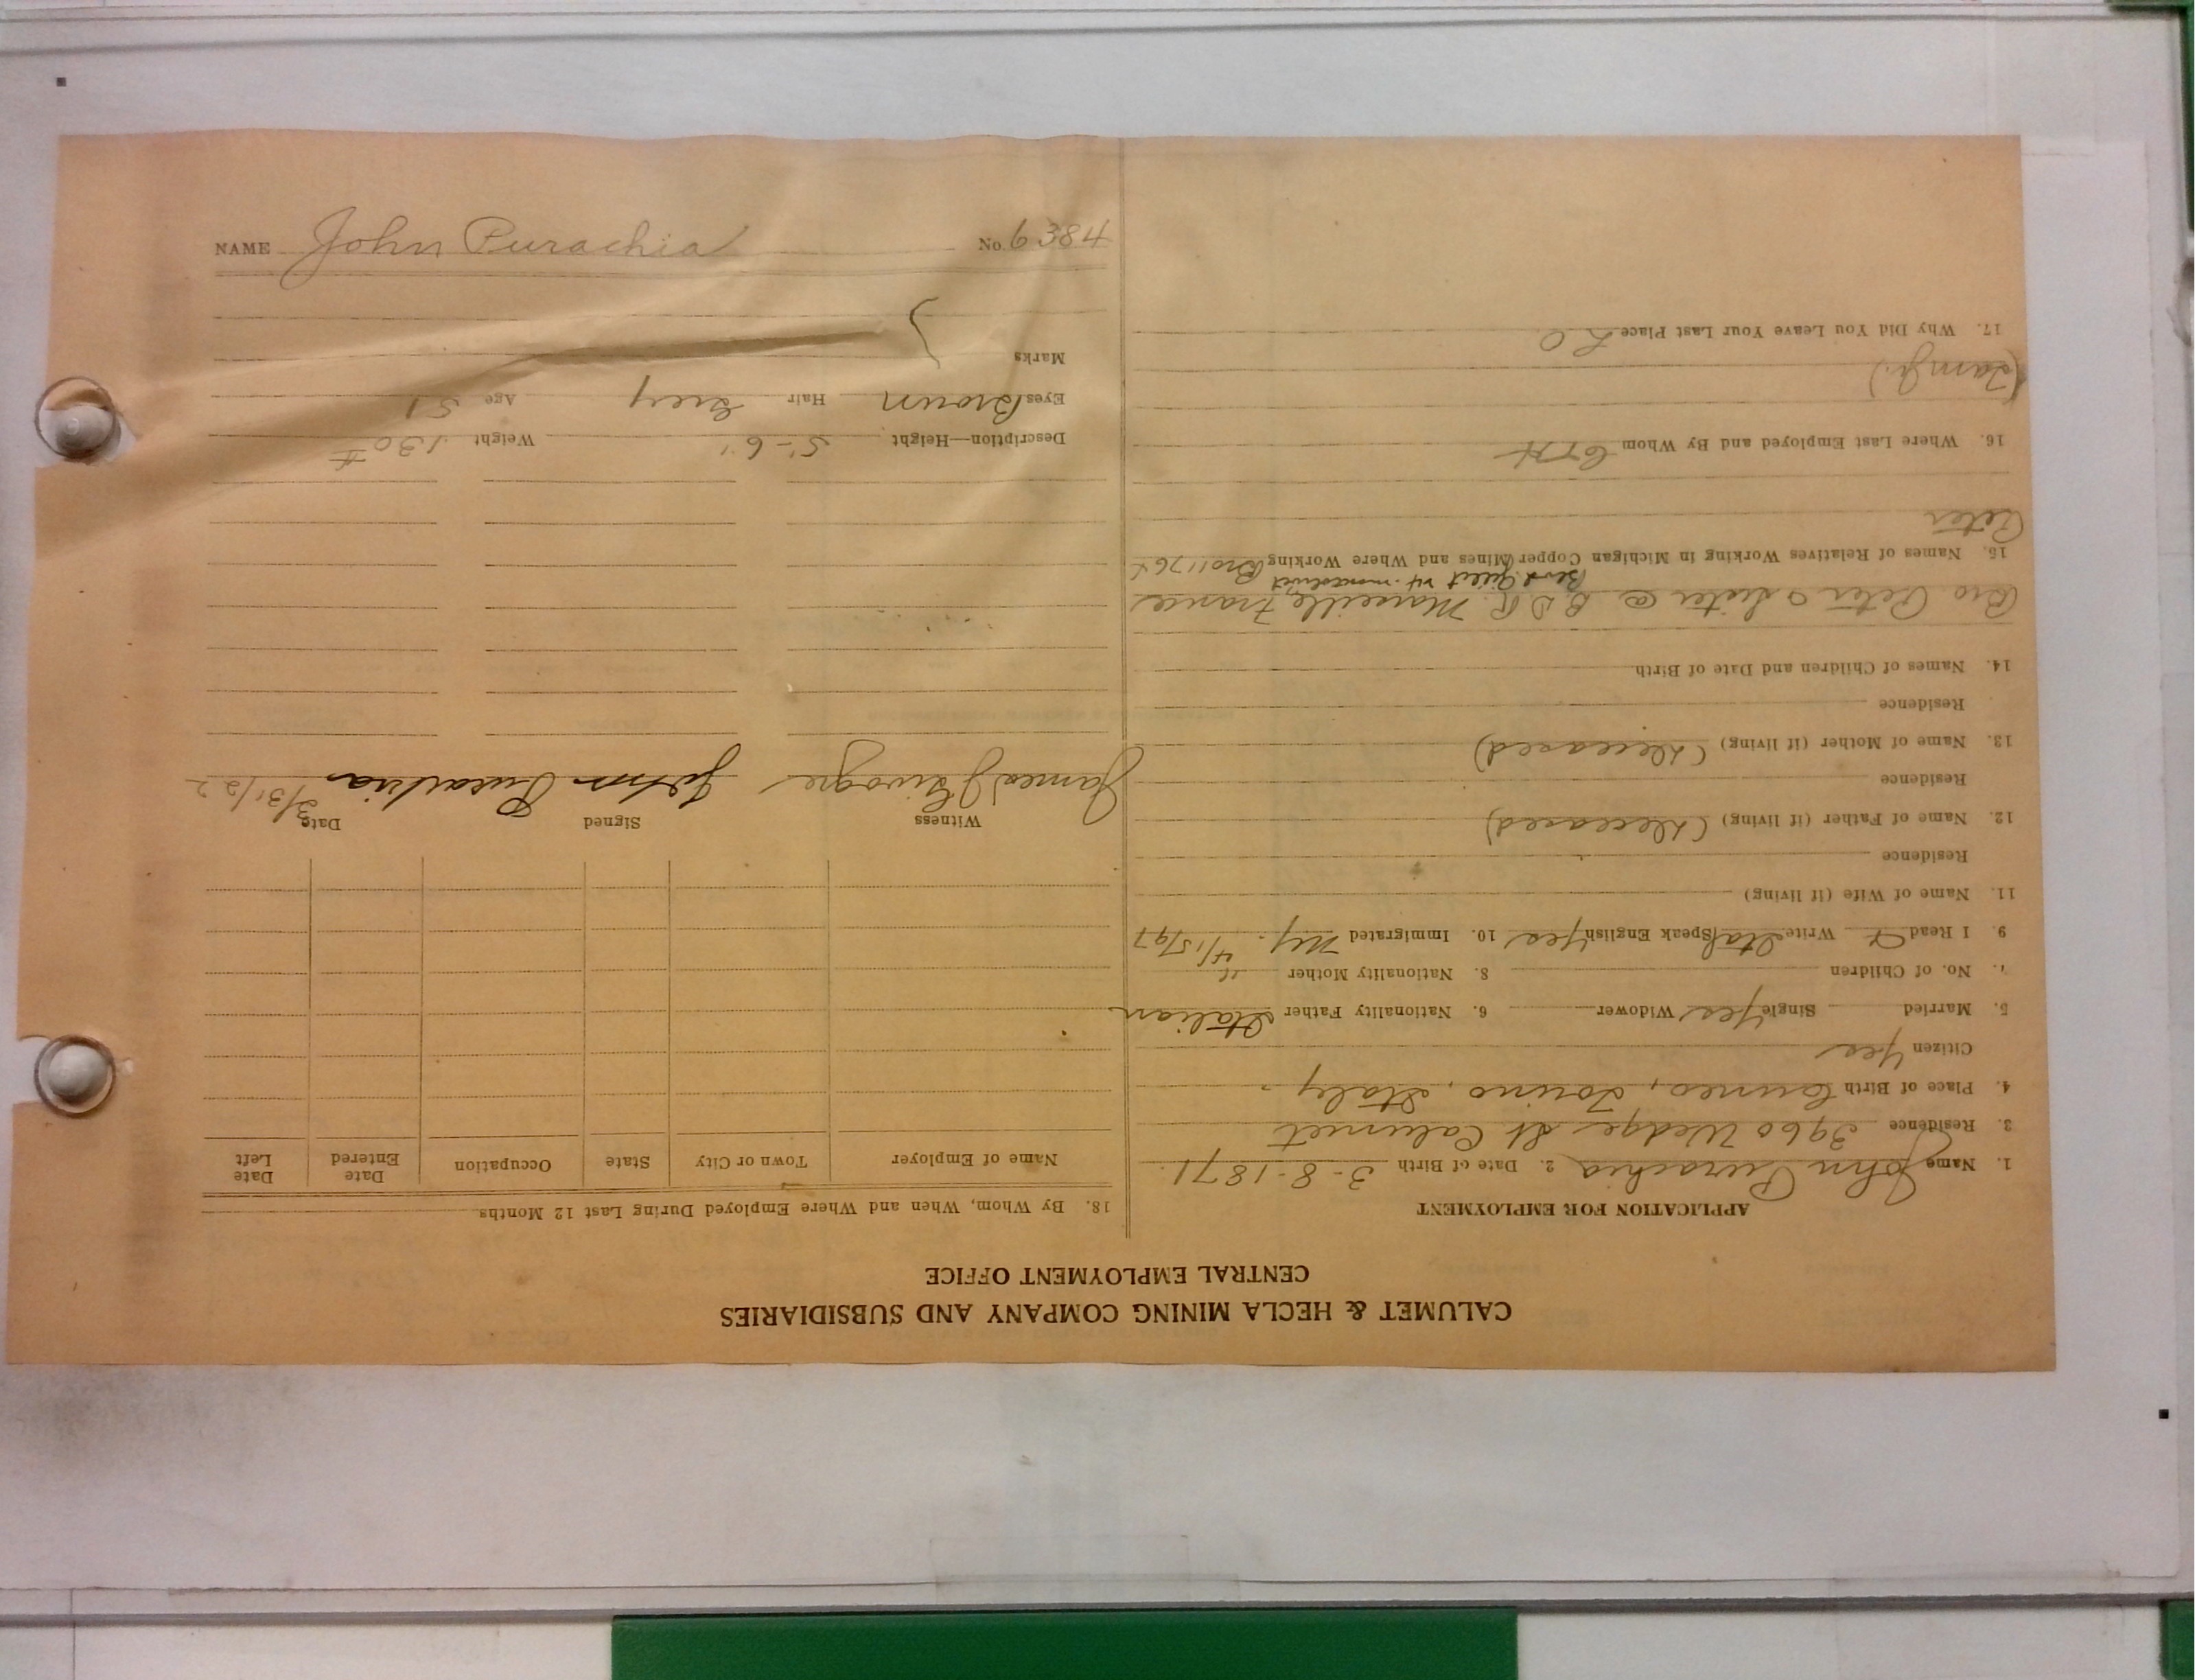 CALUMET & HECLA MINING COMPANY AND SUBSIDIARIES
CENTRAL EMPLOYMENT OFFICE
APPLICATION FOR EMPLOYMENT
1. Name John Purachia 2. Date of Birth 3-8-1871.
3. Residence 3960 Wedge St Calumet
4. Place of Birth Cuneo, Torino, Italy.
Citizen Yes
5. Married Single Yes Widower 6. Nationality Father Italian
7. No. of Children 8. Nationality Mother "
9. I Read & Write Ital Speak English Yes 10. Immigrated N.Y. 4/15/97
11. Name of Wife (if living)
Residence
12. Name of Father (if living) (Deceased)
Residence
13. Name of Mother (if living) (Deceased)
Residence
14. Names of Children and Date of Birth
Bro Peter & Sister @ B D R. Marseille, France
15. Names of Relatives Working in Michigan Copper Mines and Where Working Bro 1176
Peter
16. Where Last Employed and By Whom C&H
17. Why Did You Leave Your Last Place LO
18. By Whom, When and Where Employed During Last 12 Months
Name of Employer Town or City State Occupation Date Entered Date Left
Witness Signed Date
James J John Purachia 3/31/22
Description—Height 5'-6" Weight 130#
Eyes Brown Hair Grey Age 51
Marks
NAME John Purachia No. 6384